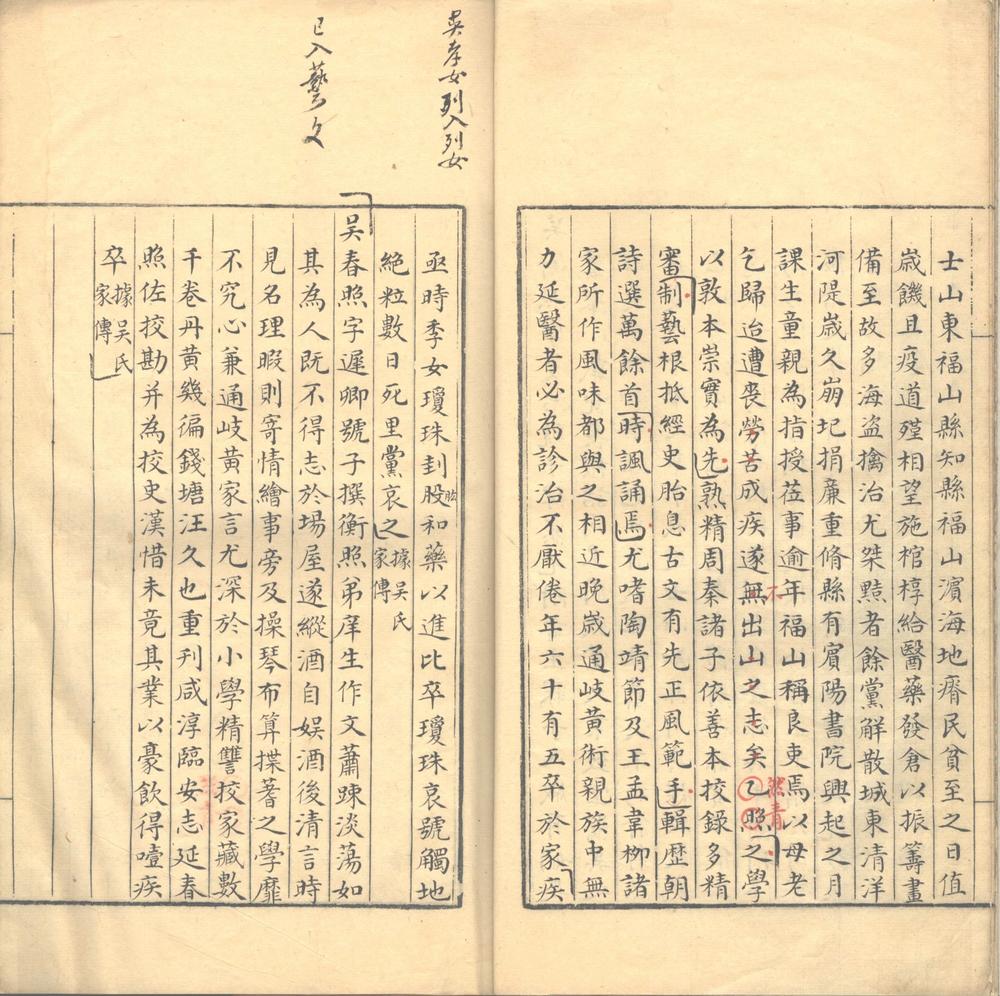 士山東福山縣知縣福山濵海地瘠民貧至之日值
歲饑且疫道殣相望施棺椁給醫藥發倉以振籌畫
備至故多海盜擒治尤桀黠者餘黨解散城東清洋
河隄歲久崩圮捐亷重脩縣有賔陽書院興起之月
課生童親為指授莅事逾年福山稱良吏焉以母老
乞歸迨遭喪勞苦成疾遂無出山之志矣乙照之學
不
以敦本崇實為先熟精周秦諸子依善本校錄多精
審制藝根抵經史胎息古文有先正風範手輯歷朝
詩選萬餘首時諷誦焉尤嗜陶靖節及王孟韋柳諸
家所作風味都與之相近晚歲通岐黃術親族中無
力延醫者必為診治不厭倦年六十有五卒於家疾
吳孝女列入列女
亟時季女瓊珠刲股和藥以進比卒瓊珠哀號觸地
肱
絕粒數日死里黨哀之據吳氏家傳
已入藝文
吳春照字遲卿號子撰衡照弟庠生作文蕭疎淡蕩如
其為人既不得志於場屋遂縱酒自娛酒後清言時
見名理暇則寄情繪事旁及操琴布算揲蓍之學靡
不究心兼通岐黃家言尤深於小學精讐挍家藏數
千卷丹黃幾徧錢塘汪久也重刊咸淳臨安志延春
照佐挍勘并為挍史漢惜未竟其業以豪飲得噎疾
卒據吳氏家傳